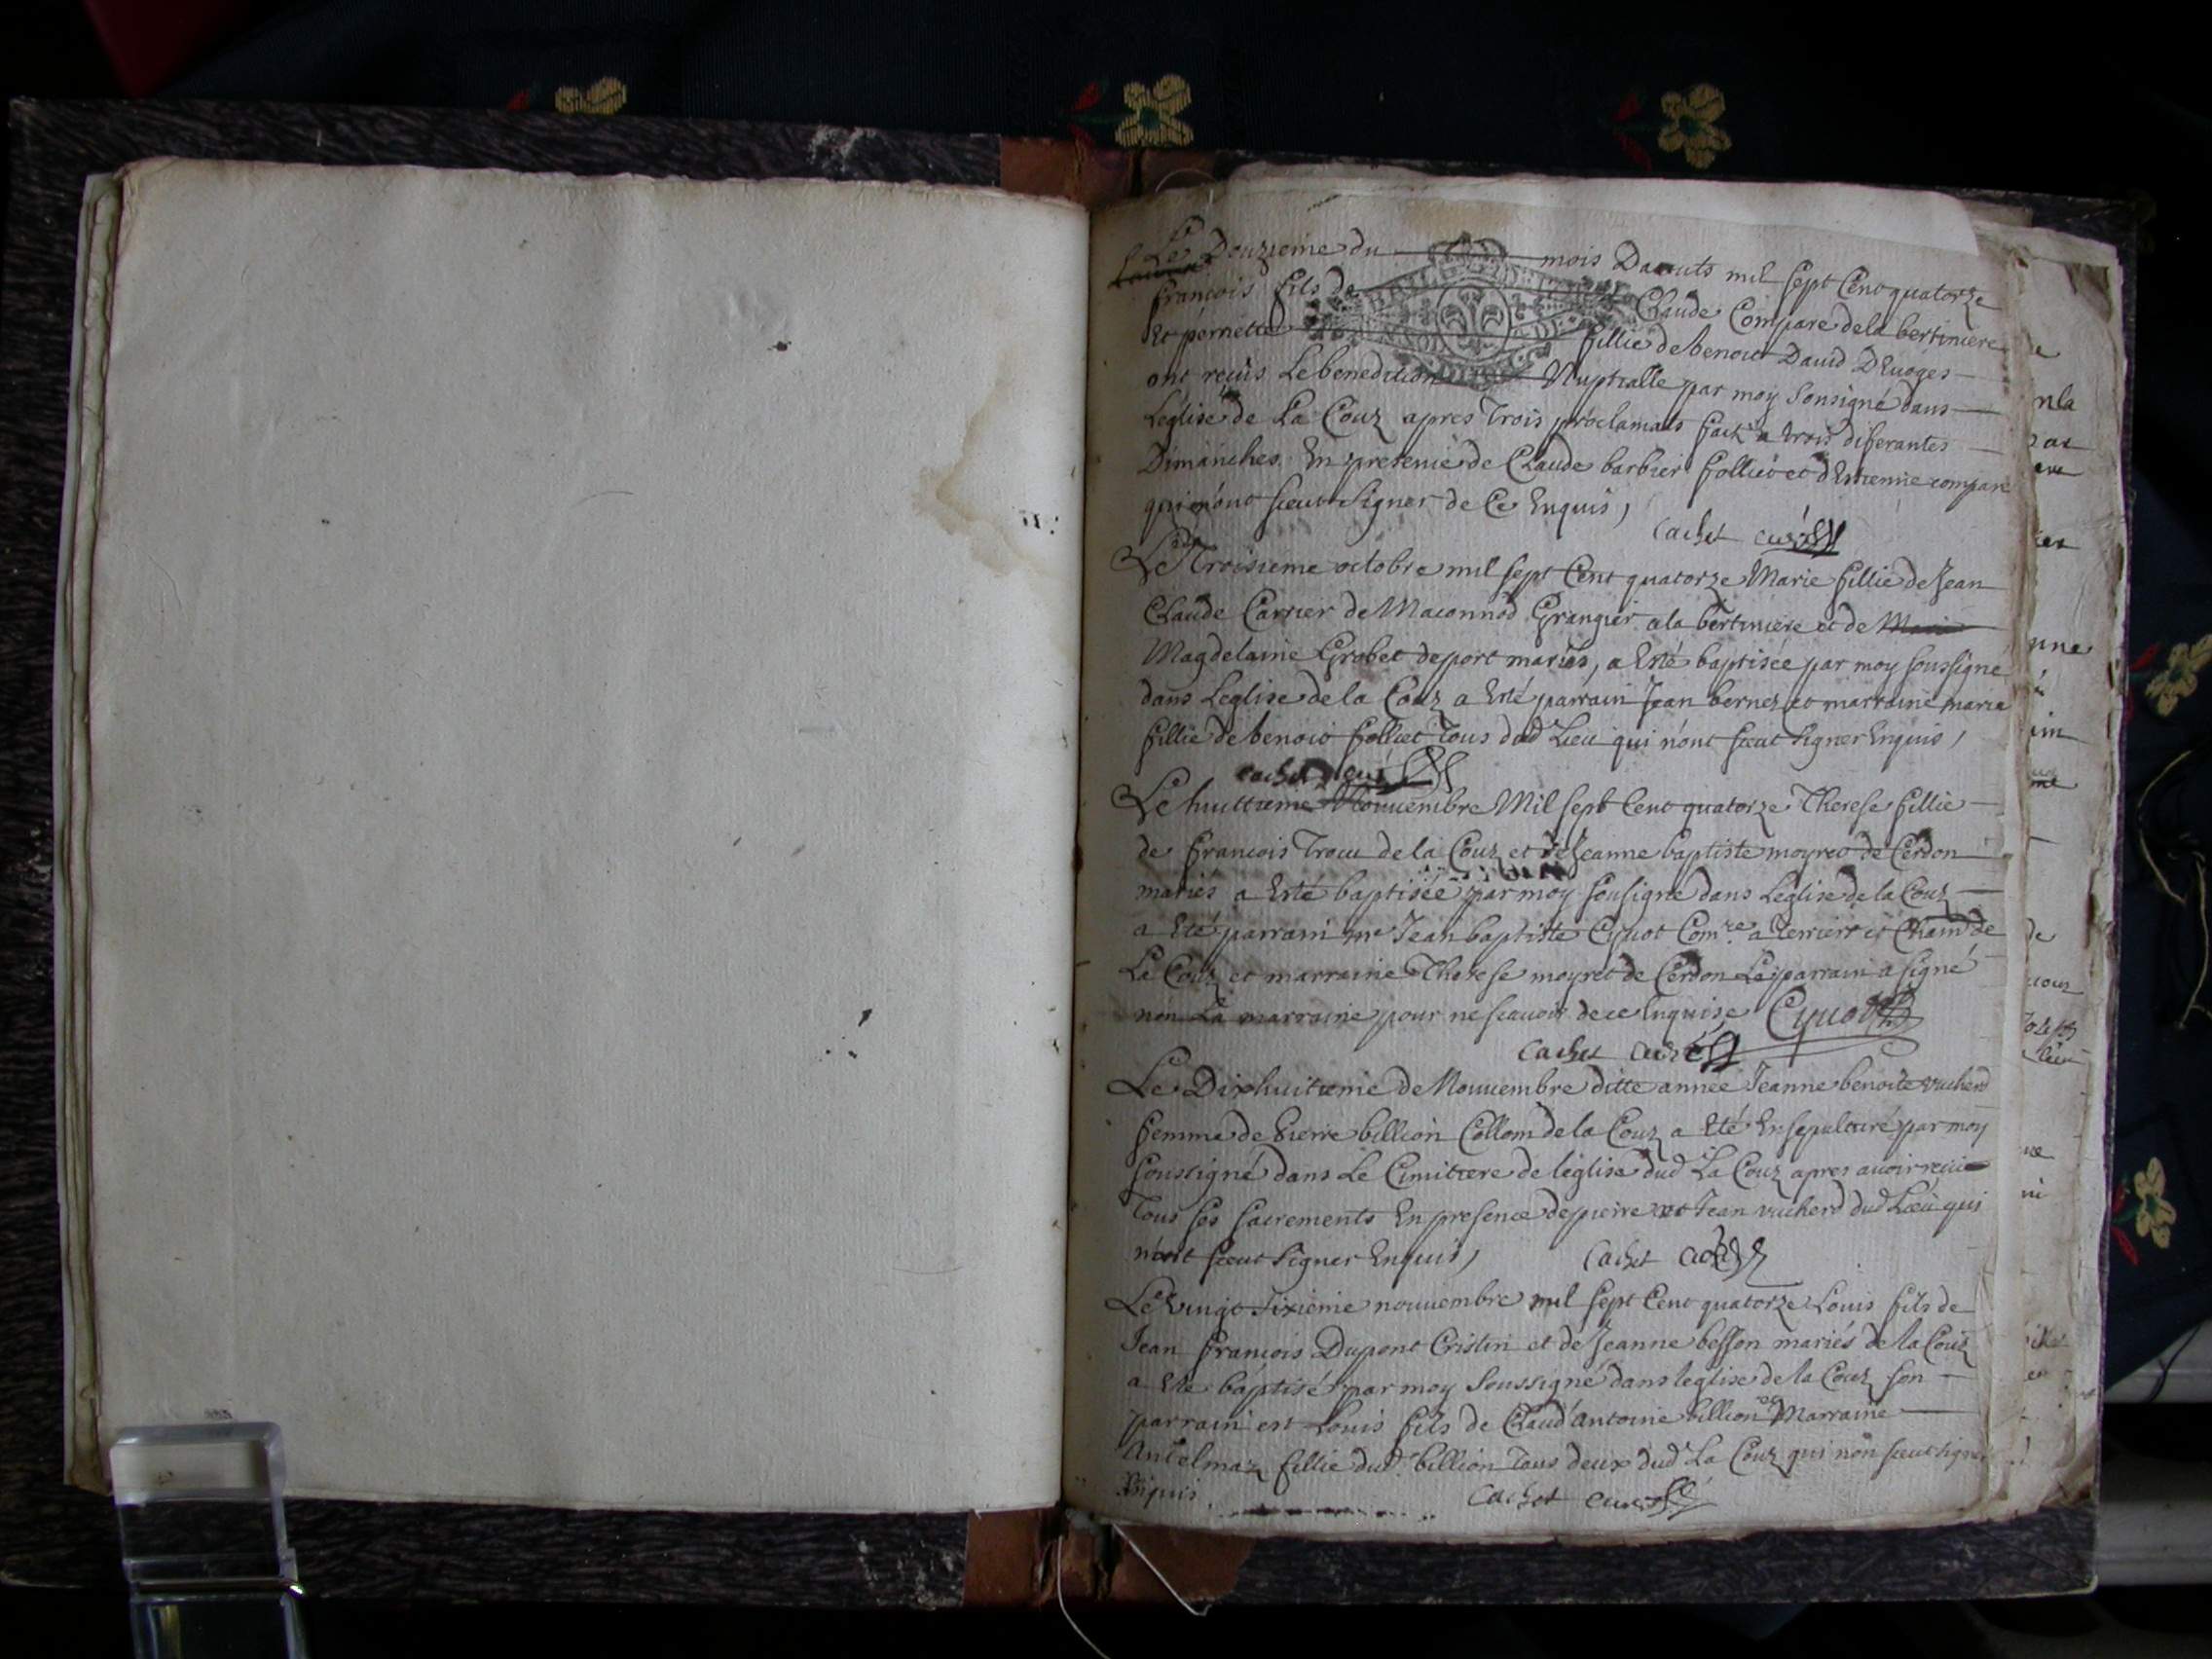 Le Douzieme du mois Daouts mil sept Cent quatorze
francois fils de Claude Compare de la bertiniere
Et pernette fillie de benoit David DEuoges
ont reçus Le benediction Nuptialle par moy sousigné dans
Leglise de La Couz apres Trois proclamats fait a trois diferantes
Dimanches En presence de Claude barbier folliet et dEstienne compare
qui n'ont sceut signer de Ce Enquis,
Cachet curé
Le Troisieme octobre mil sept Cent quatorze Marie fillie de Jean
Claude Carrier de Maconnod Grangier a la bertiniere et de
Magdelaine Grobet de port mariés, a Esté baptisée par moy soussigné
dans Leglise de la Couz a Esté parrain Jean bernez et marraine maria
fillie de benoit folliet Tous dud Lieu qui n'ont sceut signer Enquis,
cachet curé
Le huittieme Nouuembre Mil sept Cent quatorze Therese fillie
de francois Trocu de la Couz et de Jeanne baptiste moyret de Cerdon
mariés a Esté baptisée par moy sousigné dans Leglise de la Couz
a Eté parrain me Jean baptiste Cyuot Comre a Terriers et Chatn de
La Couz et marraine Therese moyret de Cerdon Le parrain a signé
non La marraine pour ne scauoir de ce Enquise Cyuot
Cachet curé
Le Dixhuitieme de Nouuembre ditte année Jeanne benoite vucherd
femme de Pierre billion Collom de la Couz a Eté Ensepulturé par moy
soussigné dans Le Cimitiere de leglise dud La Couz apres auoir recu
Tous ses sacrements En presence de pierre et Jean vucherd dud Lieu qui
n'ont sceut signer Enquis,
Cachet curé
Le vingt sixieme nouuembre mil sept Cent quatorze Louis fils de
Jean francois Dupont Cristin et de Jeanne besson mariés de la Couz
a Ete baptisé par moy soussigné dans leglise de la Couz son
parrain est Louis fils de Claud' antoine billion et Marraine
Antelmaz fillie dud. billion Tous deux dud La Couz qui n'on sceut signer
Enquis.
Cachet curé